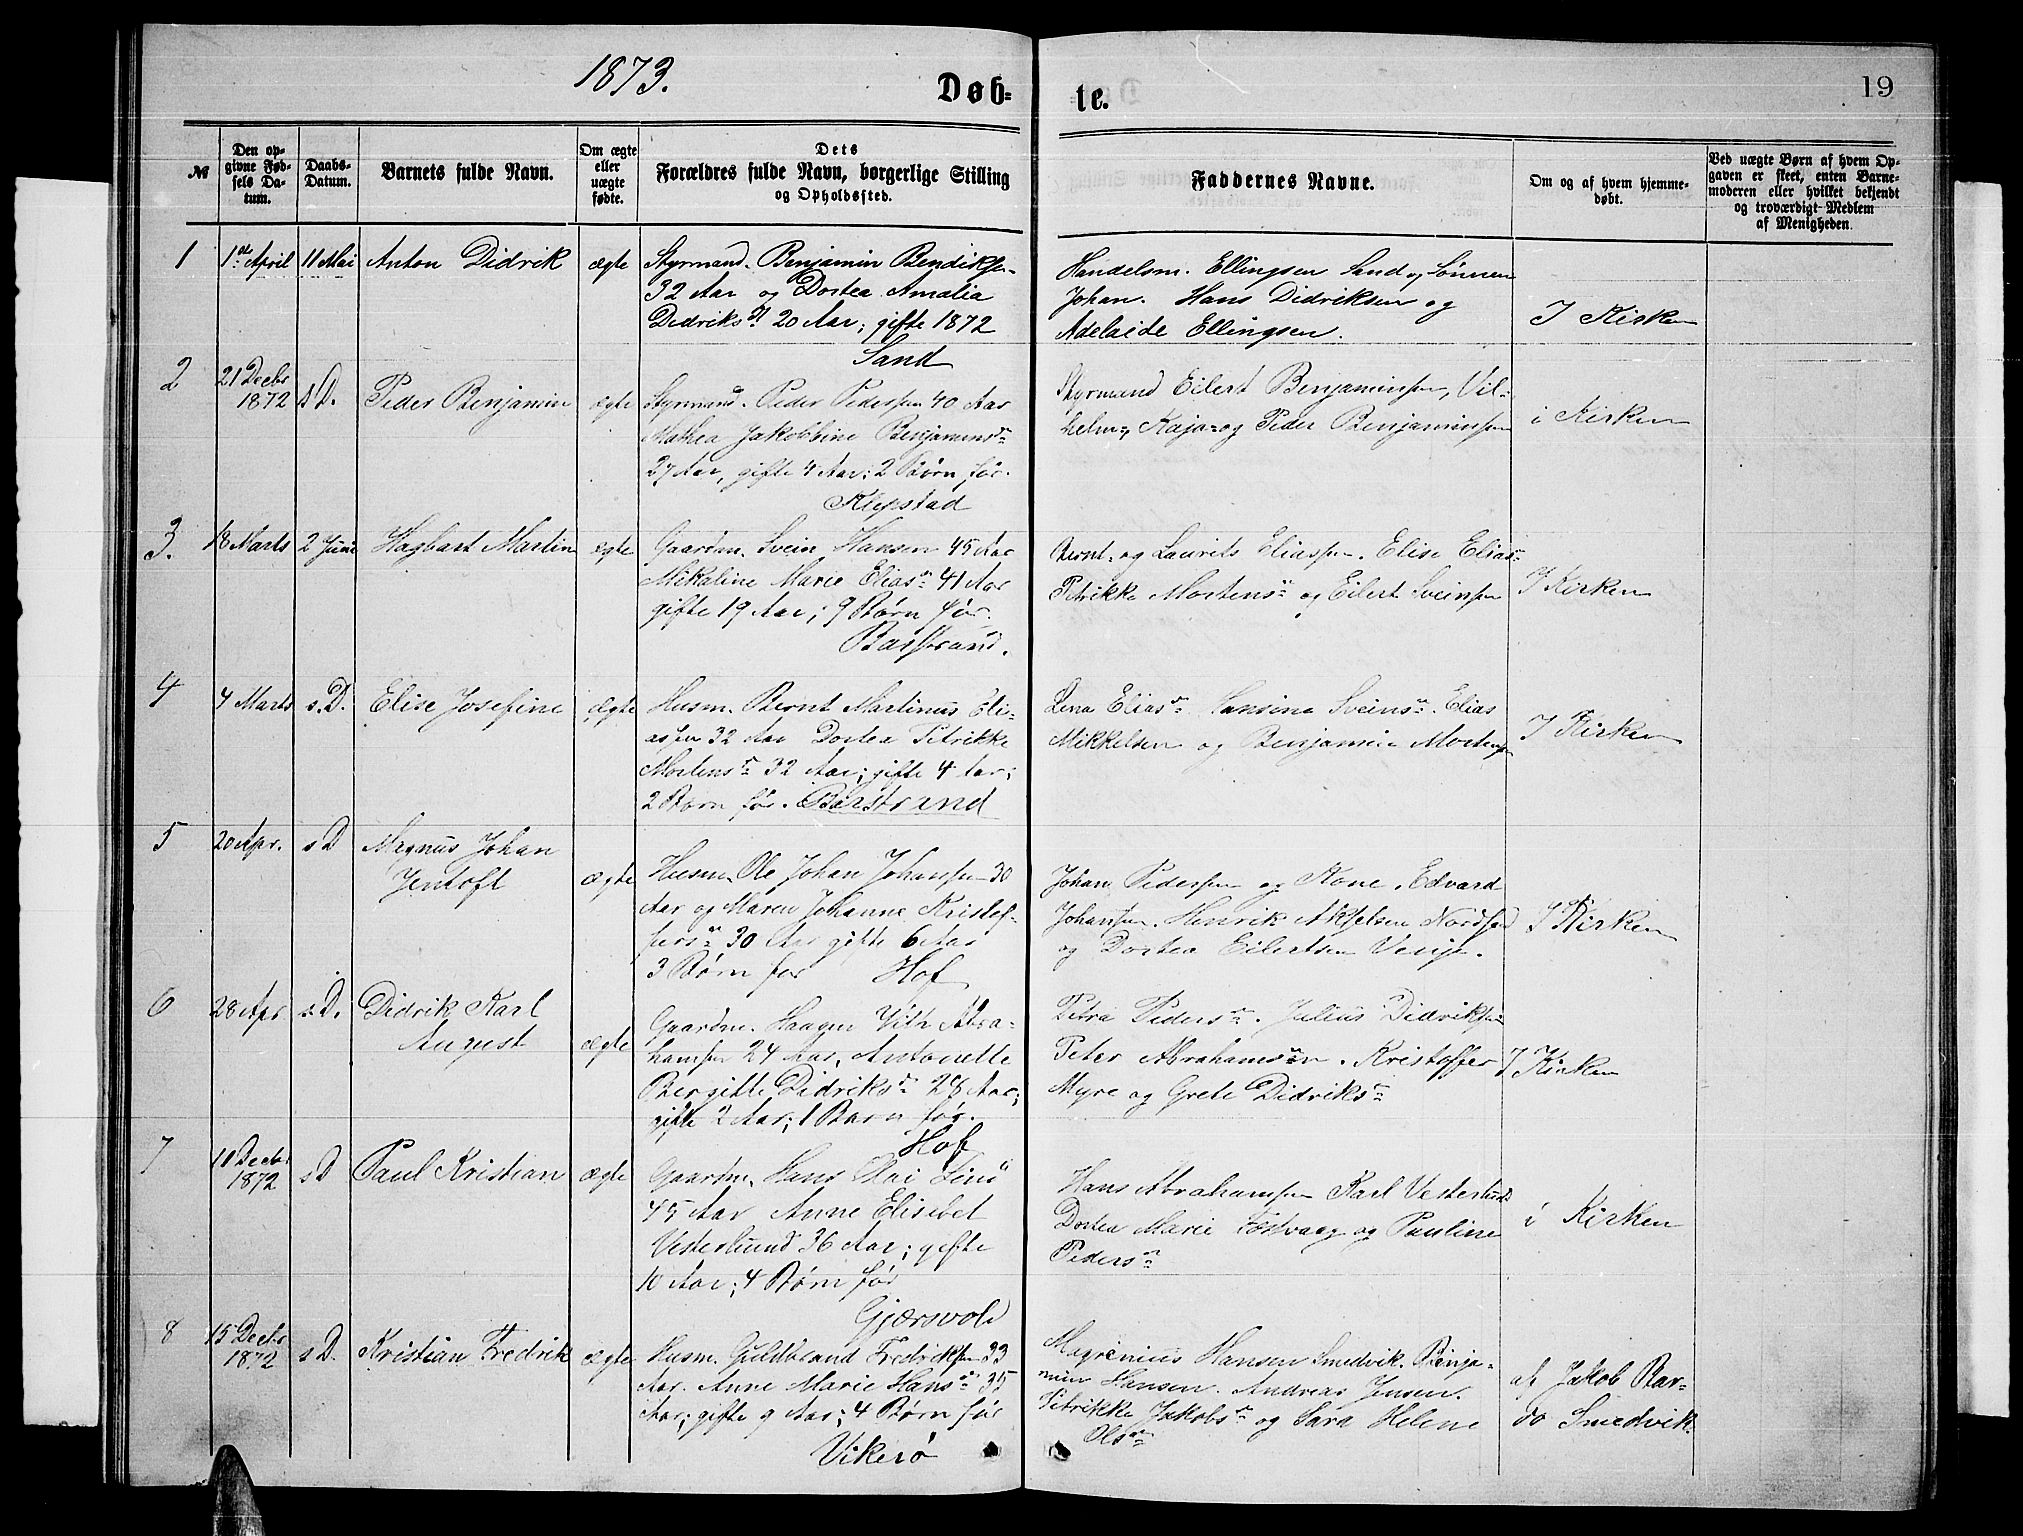 1873.
Døb=
te.
19
№
Den op-
givne Fød-
sels Da-
tum.
Daabs-
Datum.
Barnets fulde Navn.
Om ægte
eller
uægte
fødte.
Dets
Forældres fulde Navn, borgerlige Stilling
og Opholdssted.
Faddernes Navne.
Om og af hvem hjemme-
døbt.
Ved uægte Børn af hvem Op-
gaven er skeet, enten Barne-
moderen eller hvilket bekjendt
og troværdigt Medlem
af Menigheden.
1
1ste April
11 Mai
Anton Didrik
ægte
Styrmand. Benjamin Bendiksen
32 Aar og Dortea Amalia
Didriksd 20 Aar; gifte 1872
Sand
Handelsm. Ellingsen Sand og Sønnen
Johan. Hans Didriksen og
Adelaide Ellingsen.
I Kirken
2
21 Decbr
1872
s D.
Peder Benjamin
ægte
Styrmand. Peder Pedersen 40 Aar
Mathea Jakobbine Benjaminsn
27 Aar, gifte 4 Aar; 2 Børn før.
Klepstad
Styrmand Eilert Benjaminsen, Vil-
helm=, Kaja= og Peder Benjaminsen
i Kirken
3.
18 Marts
2 Juni
Hagbart Martin
ægte
Gaardm. Svein Hansen 45 Aar
Mikaline Marie Eliasn 41 Aar
gifte 19 Aar; 9 Børn før.
Barstrand.
Bernt= og Laurits Eliassen. Elise Eliasn
Petrikke Mortensn og Eilert Sveinsen
I Kirken
4
4 Marts
s. D.
Elise Josefine
ægte
Husm. Bernt Martinus Eli-
assen 32 Aar Dortea Petrikke
Mortensn 32 Aar; gifte 4 Aar;
2 Børn før. Barstrand
Lena Eliasn Hansine Sveinsn. Elias
Mikkelsen og Benjamin Mortensen
I Kirken
5
20 Apr.
s D
Magnus Johan
Jentoft
ægte
Husm. Ole Johan Johansen 30
Aar og Maren Johanne Kristof-
fersn 30 Aar gifte 6 Aar
3 Børn før Hof
Johan Pedersen og Kone. Edvard
Johansen. Henrik Akselsen
og Dortea Eilertsen
I Kirken
6
28 Apr
s. D.
Didrik Karl
August
ægte
Gaardm. Haagen Vilh Abra-
hamsen 24 Aar, Antonette
Bergitte Didriksn 28 Aar;
gifte 2 Aar; 1 Barn før.
Hof
Petra Pedersn. Julius Didriksen
Peter Abrahamsen. Kristoffer
Myre og Grete Didriksn
I Kirken
7
Decbr
1872
s D
Paul Kristian
ægte
Gaardm. Hans
45 Aar Anne Elisebet
Vesterlund 36 Aar; gifte
10 Aar; 4 Børn før
Gjærsvole
Hans Abrahamsen Karl Vesterlund
Dortea Marie Festvaag og Pauline
Pedersn
i Kirken
8
15 Decbr
1872
s D.
Kristian Fredrik
ægte
Husm. Guldbrand Fredriksen 33
Aar. Anne Marie Hansn 35
Aar; gifte 9 Aar; 4 Børn før
Vikerø
Magrenius Hansen Smedvik. Benja-
min Hansen. Andreas Jensen.
Petrikke Jakobsn og Sara Helene
Olsn
af Jakob Bar-
do Smedvik.